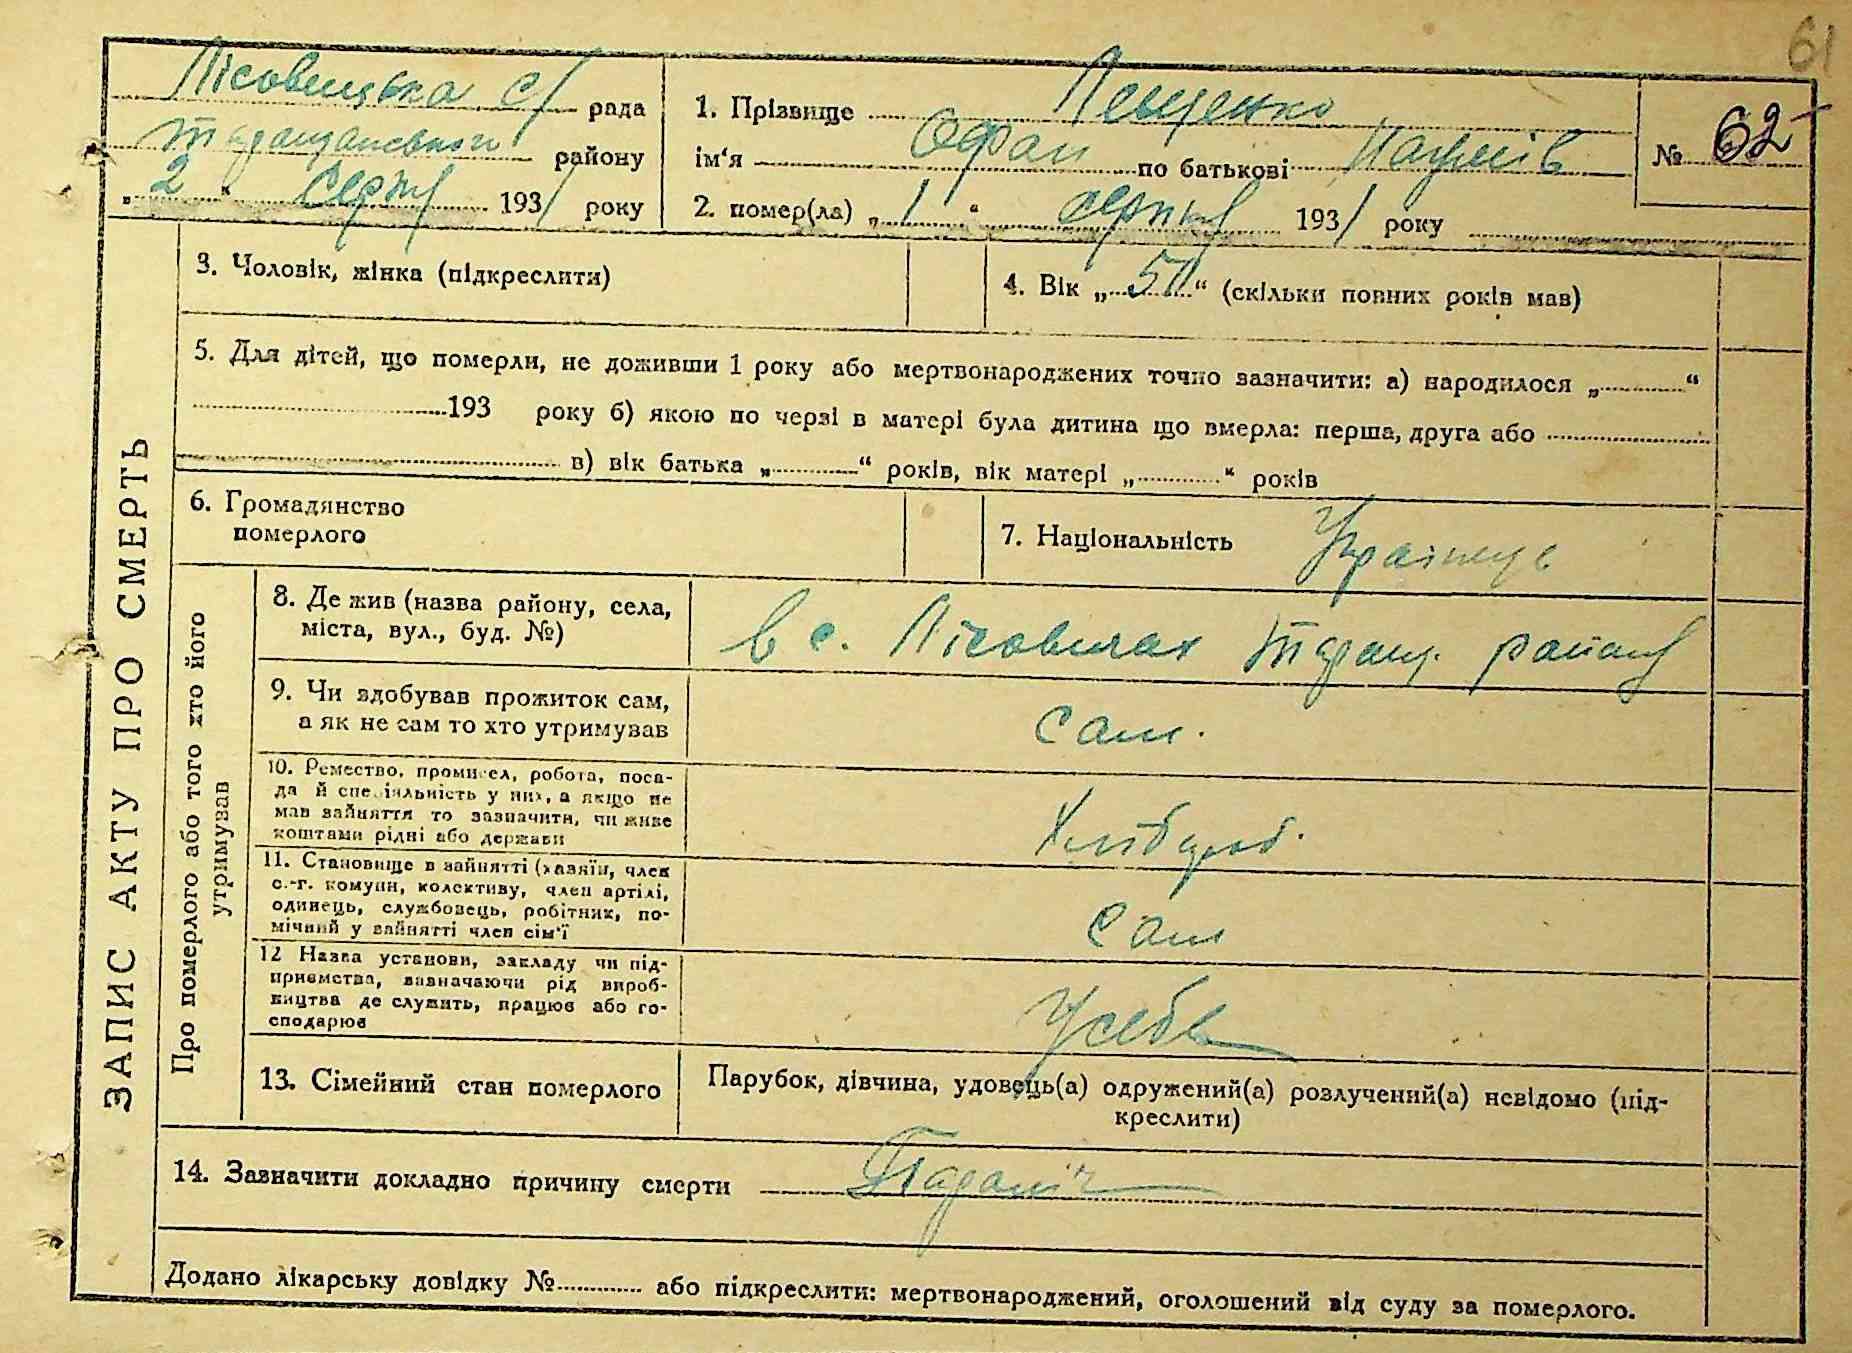 61
Лісовицька с/ рада
Таращанського району
„2“ серпн 1931 року
1. Прізвище Левченко
ім'я по батькові Наумів
2. помер(ла) „1“ серпня 1931 року
№ 62
ЗАПИС АКТУ ПРО СМЕРТЬ
3. Чоловік, жінка (підкреслити)
4. Вік „50“ (скільки повних років мав)
5. Для дітей, що померли, не доживши 1 року або мертвонароджених точно зазначити: а) народилося „............“
193 року б) якою по черзі в матері була дитина що вмерла: перша, друга або
в) вік батька „............“ років, вік матері „............“ років
6. Громадянство
померлого
7. Національність Українець
Про померлого або того хто його
утримував
8. Де жив (назва району, села,
міста, вул., буд. №)
в с. Лісовичах Таращ. району
9. Чи здобував прожиток сам,
а як не сам то хто утримував
сам.
10. Ремество, промисел, робота, поса-
да й спеціяльність у них, а якщо не
мав зайняття то зазначити, чи живе
коштами рідні або держави
Хлібороб.
11. Становище в зайнятті (хазяїн, член
с.-г. комуни, колективу, член артілі,
одинець, службовець, робітник, по-
мічний у зайнятті член сім'ї
сам
12 Назва установи, закладу чи під-
приємства, зазначаючи рід вироб-
ництва де служить, працює або го-
сподарює
У себе
13. Сімейний стан померлого
Парубок, дівчина, удовець(а) одружений(а) розлучений(а) невідомо (під-
креслити)
14. Зазначити докладно причину смерти
Додано лікарську довідку №............ або підкреслити: мертвонароджений, оголошений від суду за померлого.